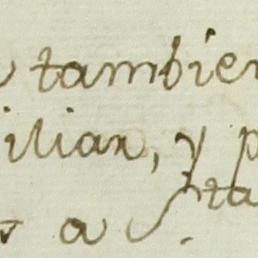 tambien
ilian, y p
a S.ta